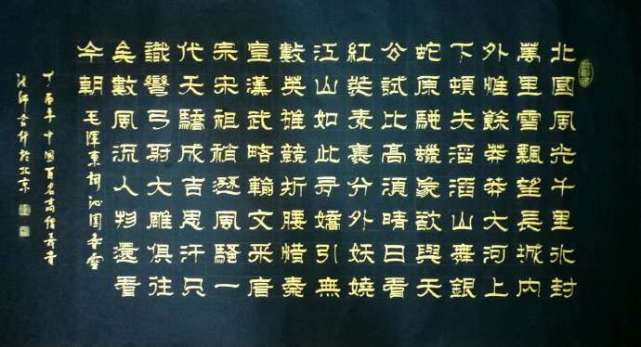 北國風光千里冰封
萬里雪飄望長城內
外惟餘莽莽大河上
下頓失滔滔山舞銀
蛇原馳蠟象欲與天
公試比高須晴日看
紅裝素裹分外妖嬈
江山如此多嬌引無
數英雄競折腰惜秦
皇漢武略輸文采唐
宗宋祖稍遜風騷一
代天驕成吉思汗只
識彎弓射大雕俱往
矣數風流人物還看
今朝 毛澤東詞沁園春雪
丁酉年中國百名高僧
法師書於北京